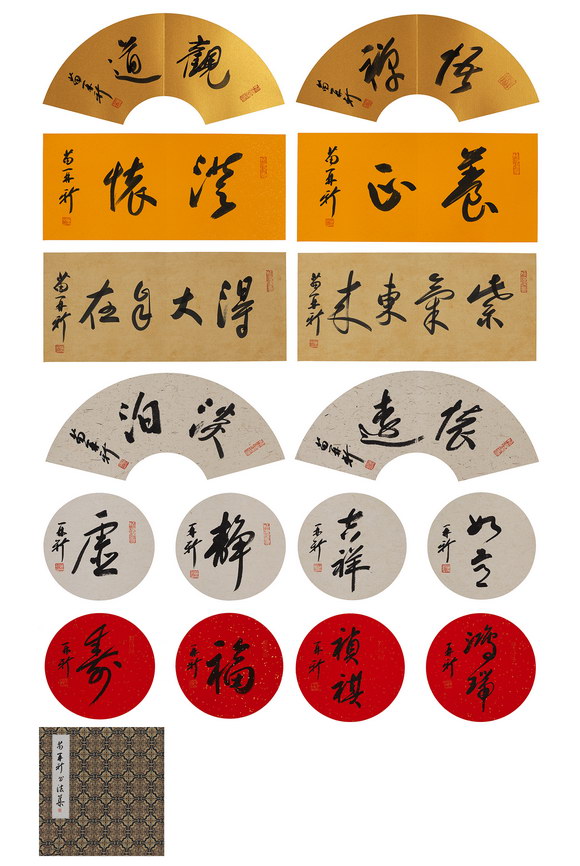 觀道
苗再新
悟禪
苗再新
澄懷
苗再新
養正
苗再新
得大自在
苗再新
紫氣東來
苗再新
淡泊
苗再新
致遠
苗再新
虛
再新
靜
再新
吉祥
再新
如意
再新
寿
再新
福
再新
禎祺
再新
鴻瑞
再新
苗再新书法集